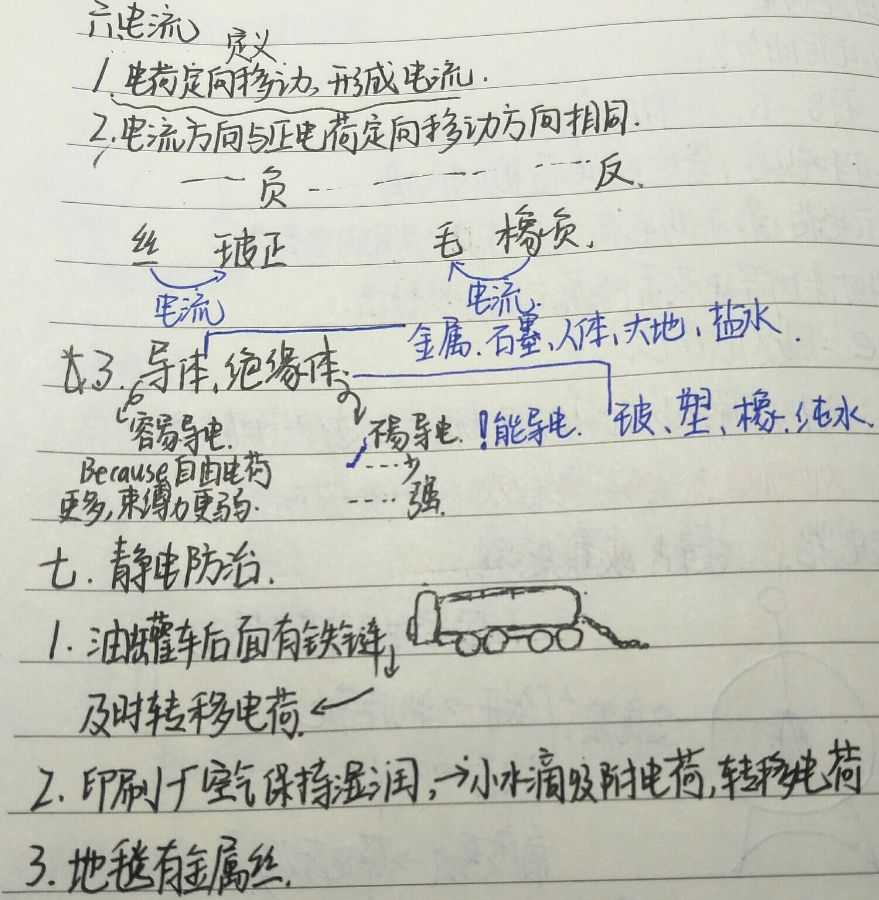 六、电流
定义
1.电荷定向移动,形成电流.
2.电流方向与正电荷定向移动方向相同.
负 反.
丝 玻正 毛 橡负.
电流 电流.
金属、石墨、人体、大地、盐水.
☆3.导体、绝缘体.
容易导电. 不易导电. !能导电. 玻、塑、橡、纯水.
Because自由电荷 ....少
更多,束缚力更弱. ....强.
七.静电防治.
1.油罐车后面有铁链
及时转移电荷.
2.印刷厂空气保持湿润,→小水滴吸附电荷,转移电荷
3.地毯有金属丝.